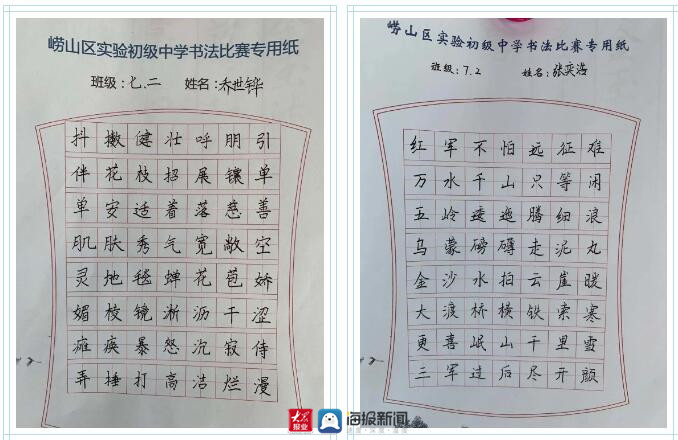 崂山区实验初级中学书法比赛专用纸
班级:七.二 姓名:乔世铧
抖擞健壮呼朋引
伴花枝招展镶单
单安适着落慈善
肌肤秀气宽敞空
灵地毯蝉花苞娇
媚棱镜淅沥干涩
瘫痪暴怒沉寂侍
弄捶打高洁烂漫
崂山区实验初级中学书法比赛专用纸
班级:7.2 姓名:张奕浩
红军不怕远征难
万水千山只等闲
五岭逶迤腾细浪
乌蒙磅礴走泥丸
金沙水拍云崖暖
大渡桥横铁索寒
更喜岷山千里雪
三军过后尽开颜
大众报业
海报新闻